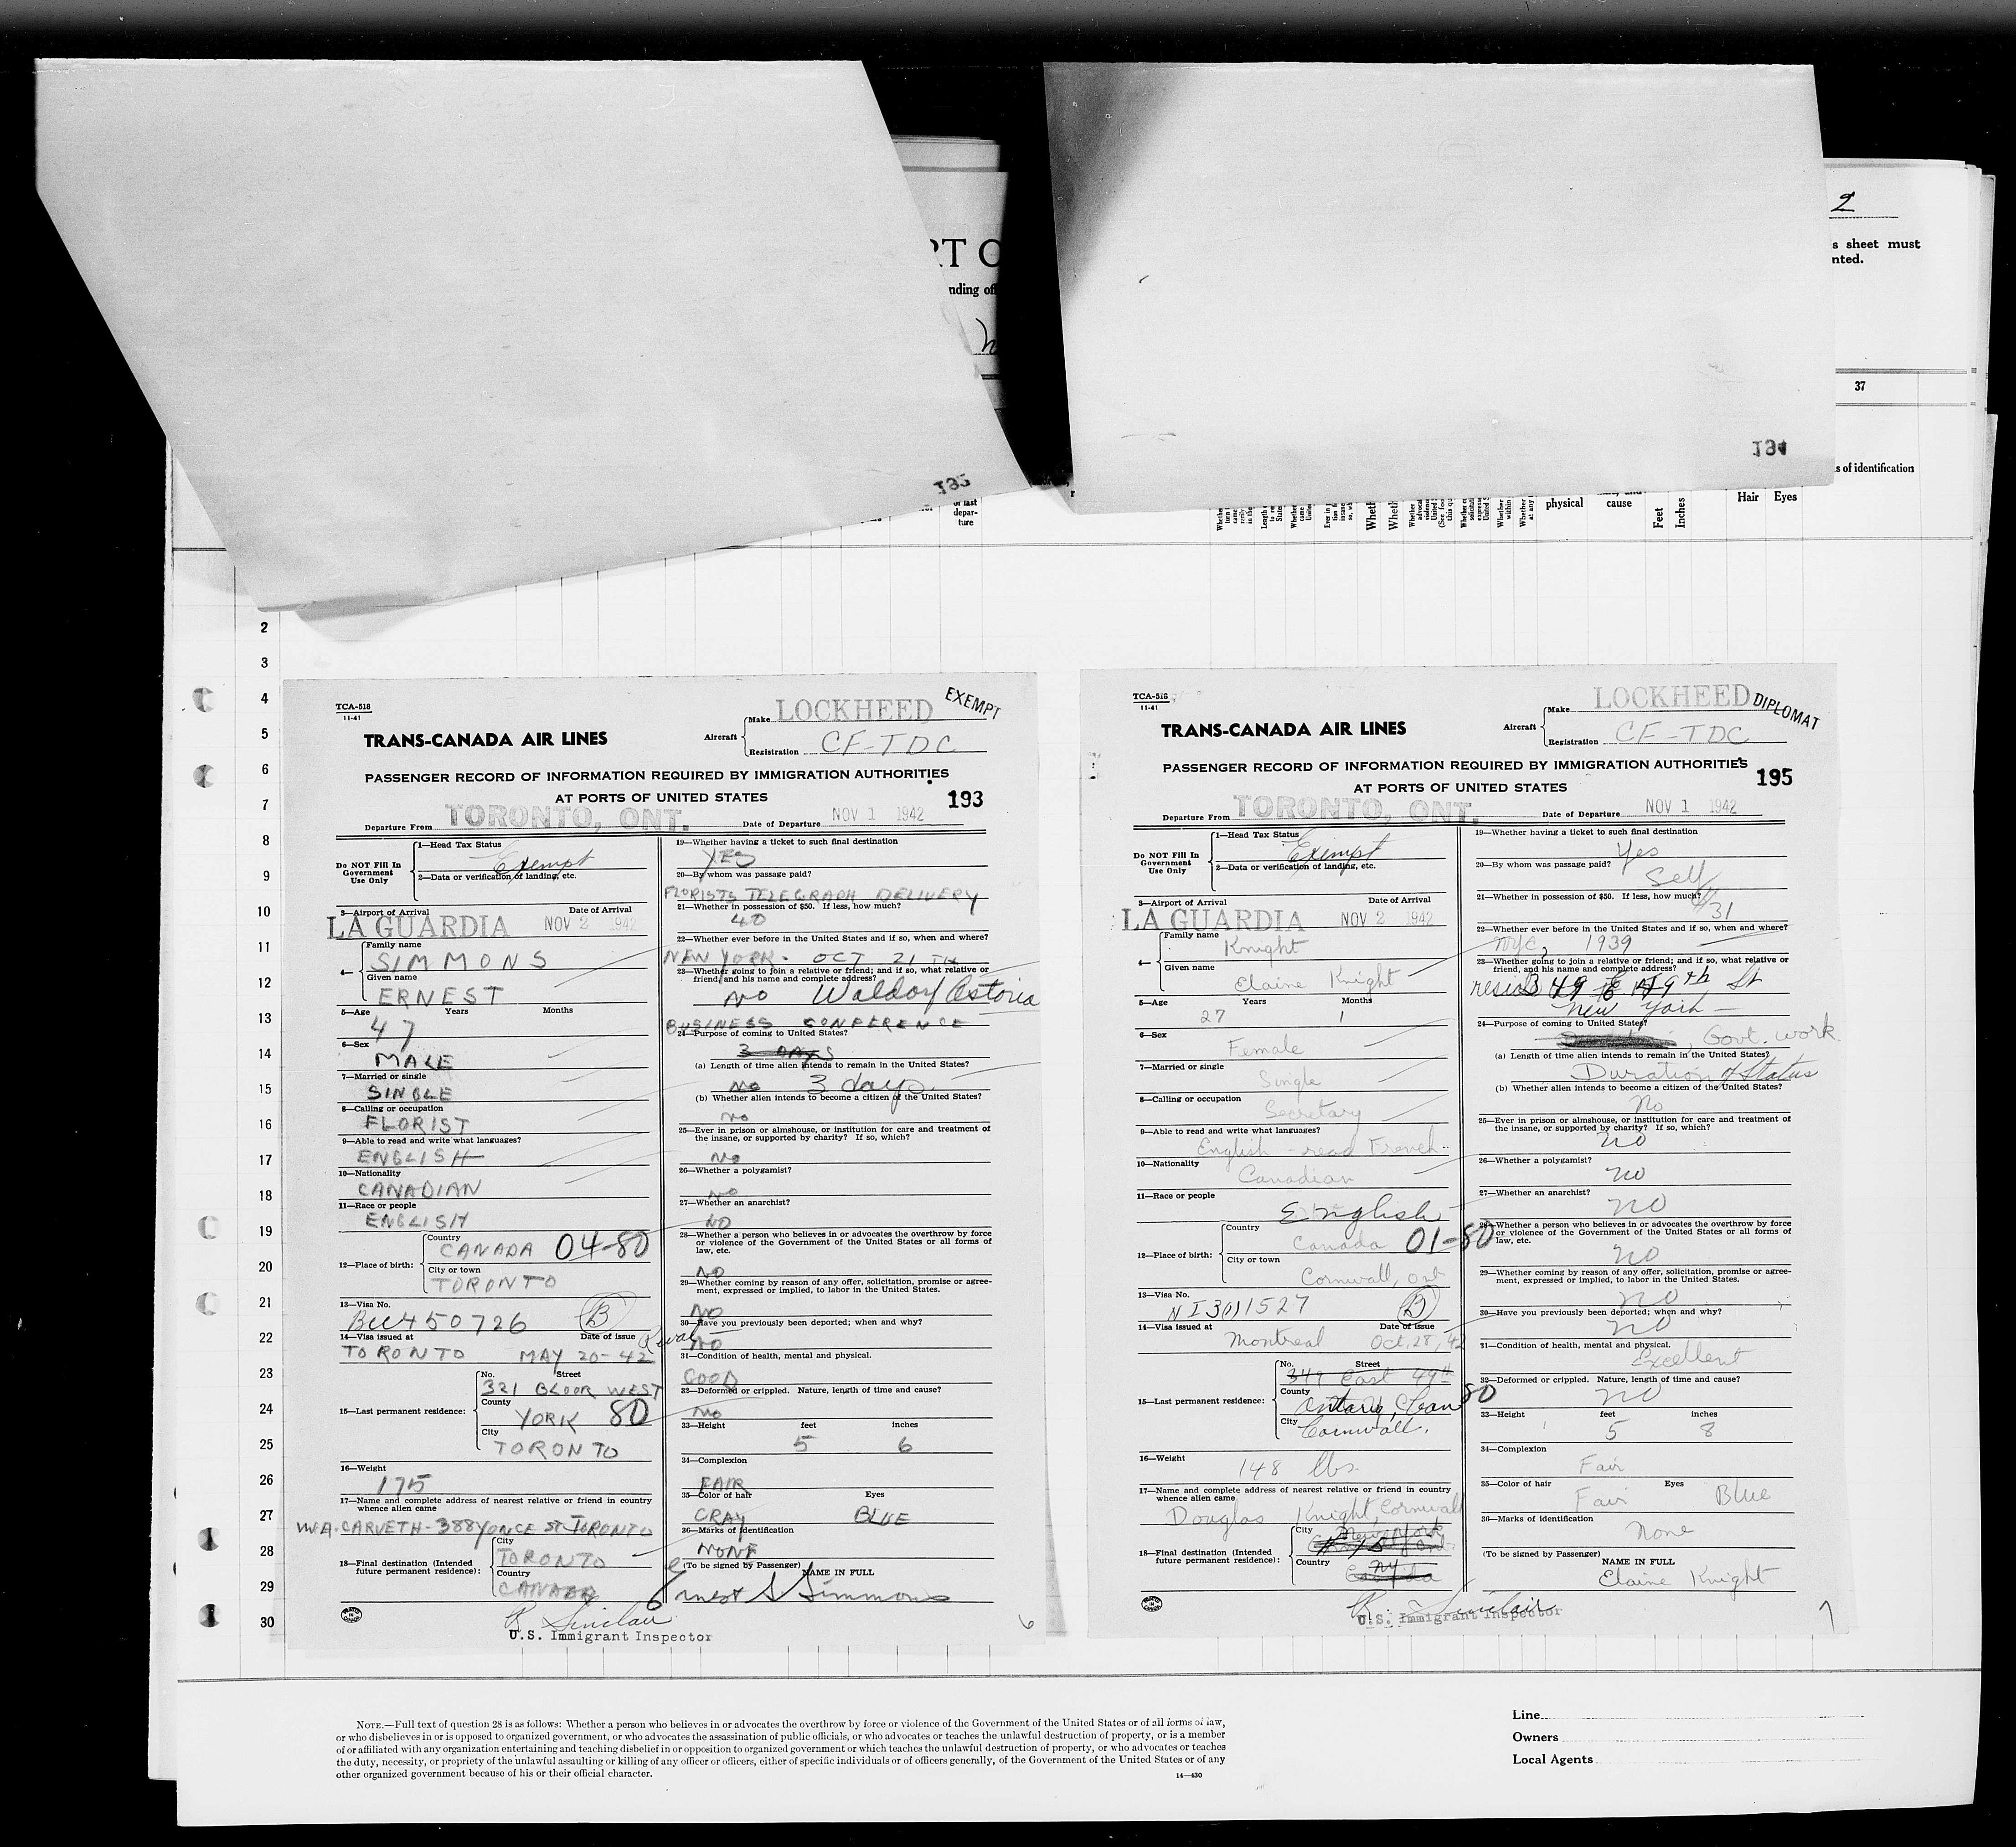 2
s sheet must
nted.
RT O
nding of
37
193
194
s of identification
of last
depar-
ture
physical
cause
Feet
Inches
Hair Eyes
2
3
4
5
6
7
8
9
10
11
12
13
14
15
16
17
18
19
20
21
22
23
24
25
26
27
28
29
30
TCA-518
11-41
TRANS-CANADA AIR LINES
Aircraft
Make LOCKHEED
EXEMPT
Registration CF-TDC
PASSENGER RECORD OF INFORMATION REQUIRED BY IMMIGRATION AUTHORITIES
AT PORTS OF UNITED STATES
193
Departure From TORONTO, ONT.
Date of Departure NOV 1 1942
Do NOT Fill In Government Use Only
1—Head Tax Status
Exempt
2—Data or verification of landing, etc.
3—Airport of Arrival
Date of Arrival
LA GUARDIA NOV 2 1942
4—
Family name
SIMMONS
Given name
ERNEST
5—Age Years Months
47
6—Sex
MALE
7—Married or single
SINGLE
8—Calling or occupation
FLORIST
9—Able to read and write what languages?
ENGLISH
10—Nationality
CANADIAN
11—Race or people
ENGLISH
12—Place of birth:
Country
CANADA 04-80
City or town
TORONTO
13—Visa No.
450726 B
14—Visa issued at Date of issue
TORONTO MAY 20-42
15—Last permanent residence:
No. Street
321 BLOOR WEST
County
YORK 80
City
TORONTO
16—Weight
175
17—Name and complete address of nearest relative or friend in country
whence alien came
W.A. CARVETH-388 YONGE ST TORONTO
18—Final destination (Intended
future permanent residence):
City
TORONTO
Country
CANADA
19—Whether having a ticket to such final destination
YES
20—By whom was passage paid?
FLORISTS TELEGRAPH DELIVERY
21—Whether in possession of $50. If less, how much?
40
22—Whether ever before in the United States and if so, when and where?
NEW YORK - OCT 21 TH
23—Whether going to join a relative or friend; and if so, what relative or
friend, and his name and complete address?
NO Waldorf Astoria
BUSINESS CONFERENCE
24—Purpose of coming to United States?
3 DAYS
(a) Length of time alien intends to remain in the United States?
NO 3 days.
(b) Whether alien intends to become a citizen of the United States?
NO
25—Ever in prison or almshouse, or institution for care and treatment of
the insane, or supported by charity? If so, which?
NO
26—Whether a polygamist?
NO
27—Whether an anarchist?
NO
28—Whether a person who believes in or advocates the overthrow by force
or violence of the Government of the United States or all forms of
law, etc.
NO
29—Whether coming by reason of any offer, solicitation, promise or agree-
ment, expressed or implied, to labor in the United States.
NO
30—Have you previously been deported; when and why?
NO
31—Condition of health, mental and physical.
GOOD
32—Deformed or crippled. Nature, length of time and cause?
NO
33—Height feet inches
5 6
34—Complexion
FAIR
35—Color of hair Eyes
GRAY BLUE
36—Marks of identification
NONE
(To be signed by Passenger)
NAME IN FULL
Ernest S Simmons
R. Sinclair
U.S. Immigrant Inspector
6
TCA-518
11-41
TRANS-CANADA AIR LINES
Aircraft
Make LOCKHEED
DIPLOMAT
Registration CF-TDC
PASSENGER RECORD OF INFORMATION REQUIRED BY IMMIGRATION AUTHORITIES
AT PORTS OF UNITED STATES
195
Departure From TORONTO, ONT.
Date of Departure NOV 1 1942
Do NOT Fill In Government Use Only
1—Head Tax Status
Exempt
2—Data or verification of landing, etc.
3—Airport of Arrival
Date of Arrival
LA GUARDIA NOV 2 1942
4—
Family name
Knight
Given name
Elaine Knight
5—Age Years Months
27 1
6—Sex
Female
7—Married or single
Single
8—Calling or occupation
Secretary
9—Able to read and write what languages?
English - read French
10—Nationality
Canadian
11—Race or people
English
12—Place of birth:
Country
Canada 01-80
City or town
Cornwall, Ont
13—Visa No.
NI 3(1)1527 B
14—Visa issued at Date of issue
Montreal Oct. 28, 42
15—Last permanent residence:
No. Street
349 East 49th
County
Ontario, Can 80
City
Cornwall.
16—Weight
148 lbs.
17—Name and complete address of nearest relative or friend in country
whence alien came
Douglas Knight, Cornwall
18—Final destination (Intended
future permanent residence):
City
New York
Country
NY
Canada
19—Whether having a ticket to such final destination
Yes
20—By whom was passage paid?
Self
21—Whether in possession of $50. If less, how much?
$31
22—Whether ever before in the United States and if so, when and where?
NYC, 1939
23—Whether going to join a relative or friend; and if so, what relative or
friend, and his name and complete address?
349 E 49th St
New York
24—Purpose of coming to United States?
, Govt. work
(a) Length of time alien intends to remain in the United States?
Duration of Status
(b) Whether alien intends to become a citizen of the United States?
No
25—Ever in prison or almshouse, or institution for care and treatment of
the insane, or supported by charity? If so, which?
no
26—Whether a polygamist?
no
27—Whether an anarchist?
no
28—Whether a person who believes in or advocates the overthrow by force
or violence of the Government of the United States or all forms of
law, etc.
no
29—Whether coming by reason of any offer, solicitation, promise or agree-
ment, expressed or implied, to labor in the United States.
no
30—Have you previously been deported; when and why?
no
31—Condition of health, mental and physical.
Excellent
32—Deformed or crippled. Nature, length of time and cause?
no
33—Height feet inches
5 8
34—Complexion
Fair
35—Color of hair Eyes
Fair Blue
36—Marks of identification
None
(To be signed by Passenger)
NAME IN FULL
Elaine Knight
R. Sinclair
U.S. Immigrant Inspector
7
NOTE.—Full text of question 28 is as follows: Whether a person who believes in or advocates the overthrow by force or violence of the Government of the United States or of all forms of law,
or who disbelieves in or is opposed to organized government, or who advocates the assassination of public officials, or who advocates or teaches the unlawful destruction of property, or is a member
of or affiliated with any organization entertaining and teaching disbelief in or opposition to organized government or which teaches the unlawful destruction of property, or who advocates or teaches
the duty, necessity, or propriety of the unlawful assaulting or killing of any officer or officers, either of specific individuals or of officers generally, of the Government of the United States or of any
other organized government because of his or their official character.
14—430
Line
Owners
Local Agents